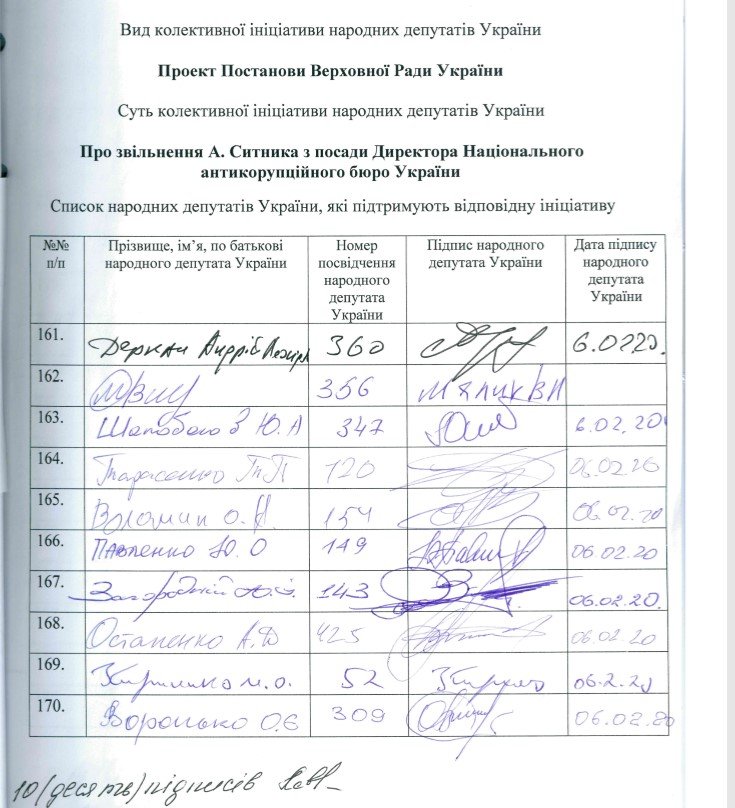 Вид колективної ініціативи народних депутатів України
Проект Постанови Верховної Ради України
Суть колективної ініціативи народних депутатів України
Про звільнення А. Ситника з посади Директора Національного
антикорупційного бюро України
Список народних депутатів України, які підтримують відповідну ініціативу
№№ п/п Прізвище, ім’я, по батькові народного депутата України Номер посвідчення народного депутата України Підпис народного депутата України Дата підпису народного депутата України
161. Деркач Андрій 360 6.0220.
162. 356 М'ялик В Н
163. Шаповалов Ю. А 347 6.02.20
164. Тарасенко Т.П 120 06.02.20
165. Волошин О.А. 154 06.02.20
166. Павленко Ю. О 149 06.02.20
167. Загородній 143 06.02.20.
168. Остапенко А.Д 425 06.02.20
169. 52 06.2.20
170. Воронько О.Є 309 06.02.20
10 (десять) підписів